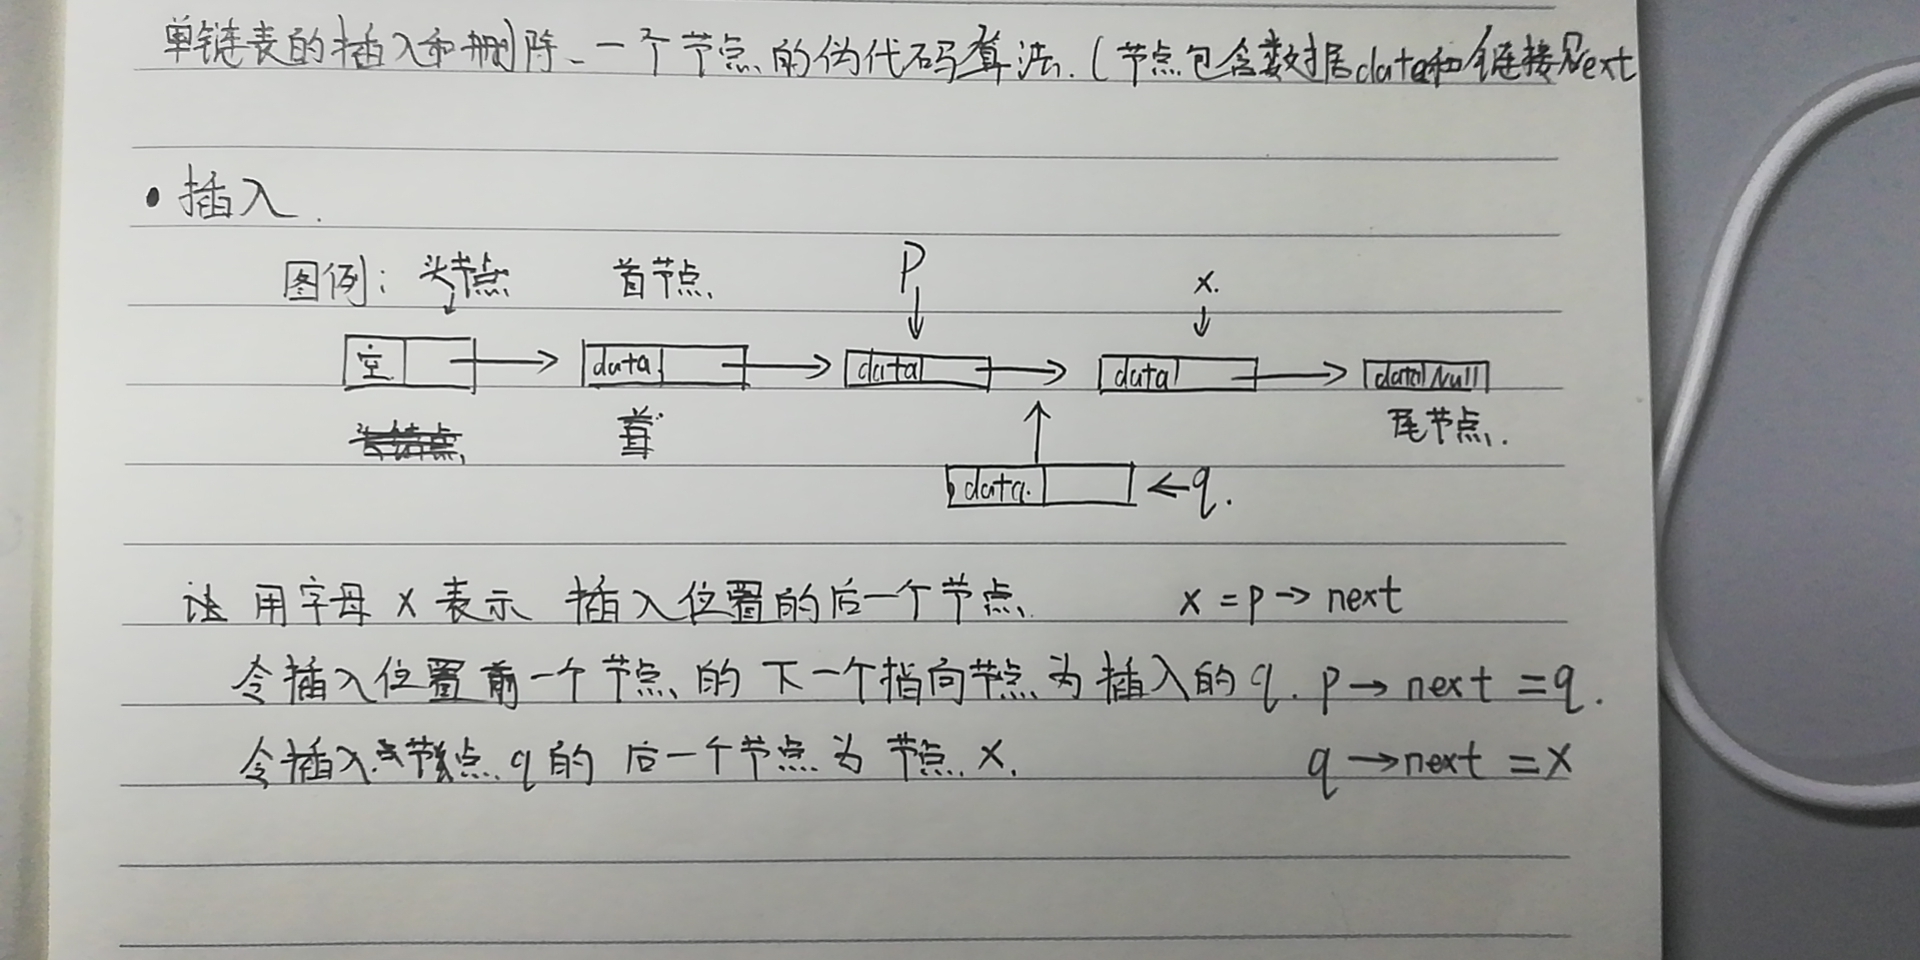 单链表的插入和删除一个节点的伪代码算法.(节点包含数据data和链接Next
• 插入.
图例: 头节点 首节点 P x.
空 data data data data Null
首 尾节点.
data. ←q.
用字母 x 表示 插入位置的后一个节点. x = p → next
令插入位置前一个节点的下一个指向节点为插入的q. p → next = q.
令插入节点q的后一个节点为节点x. q → next = x